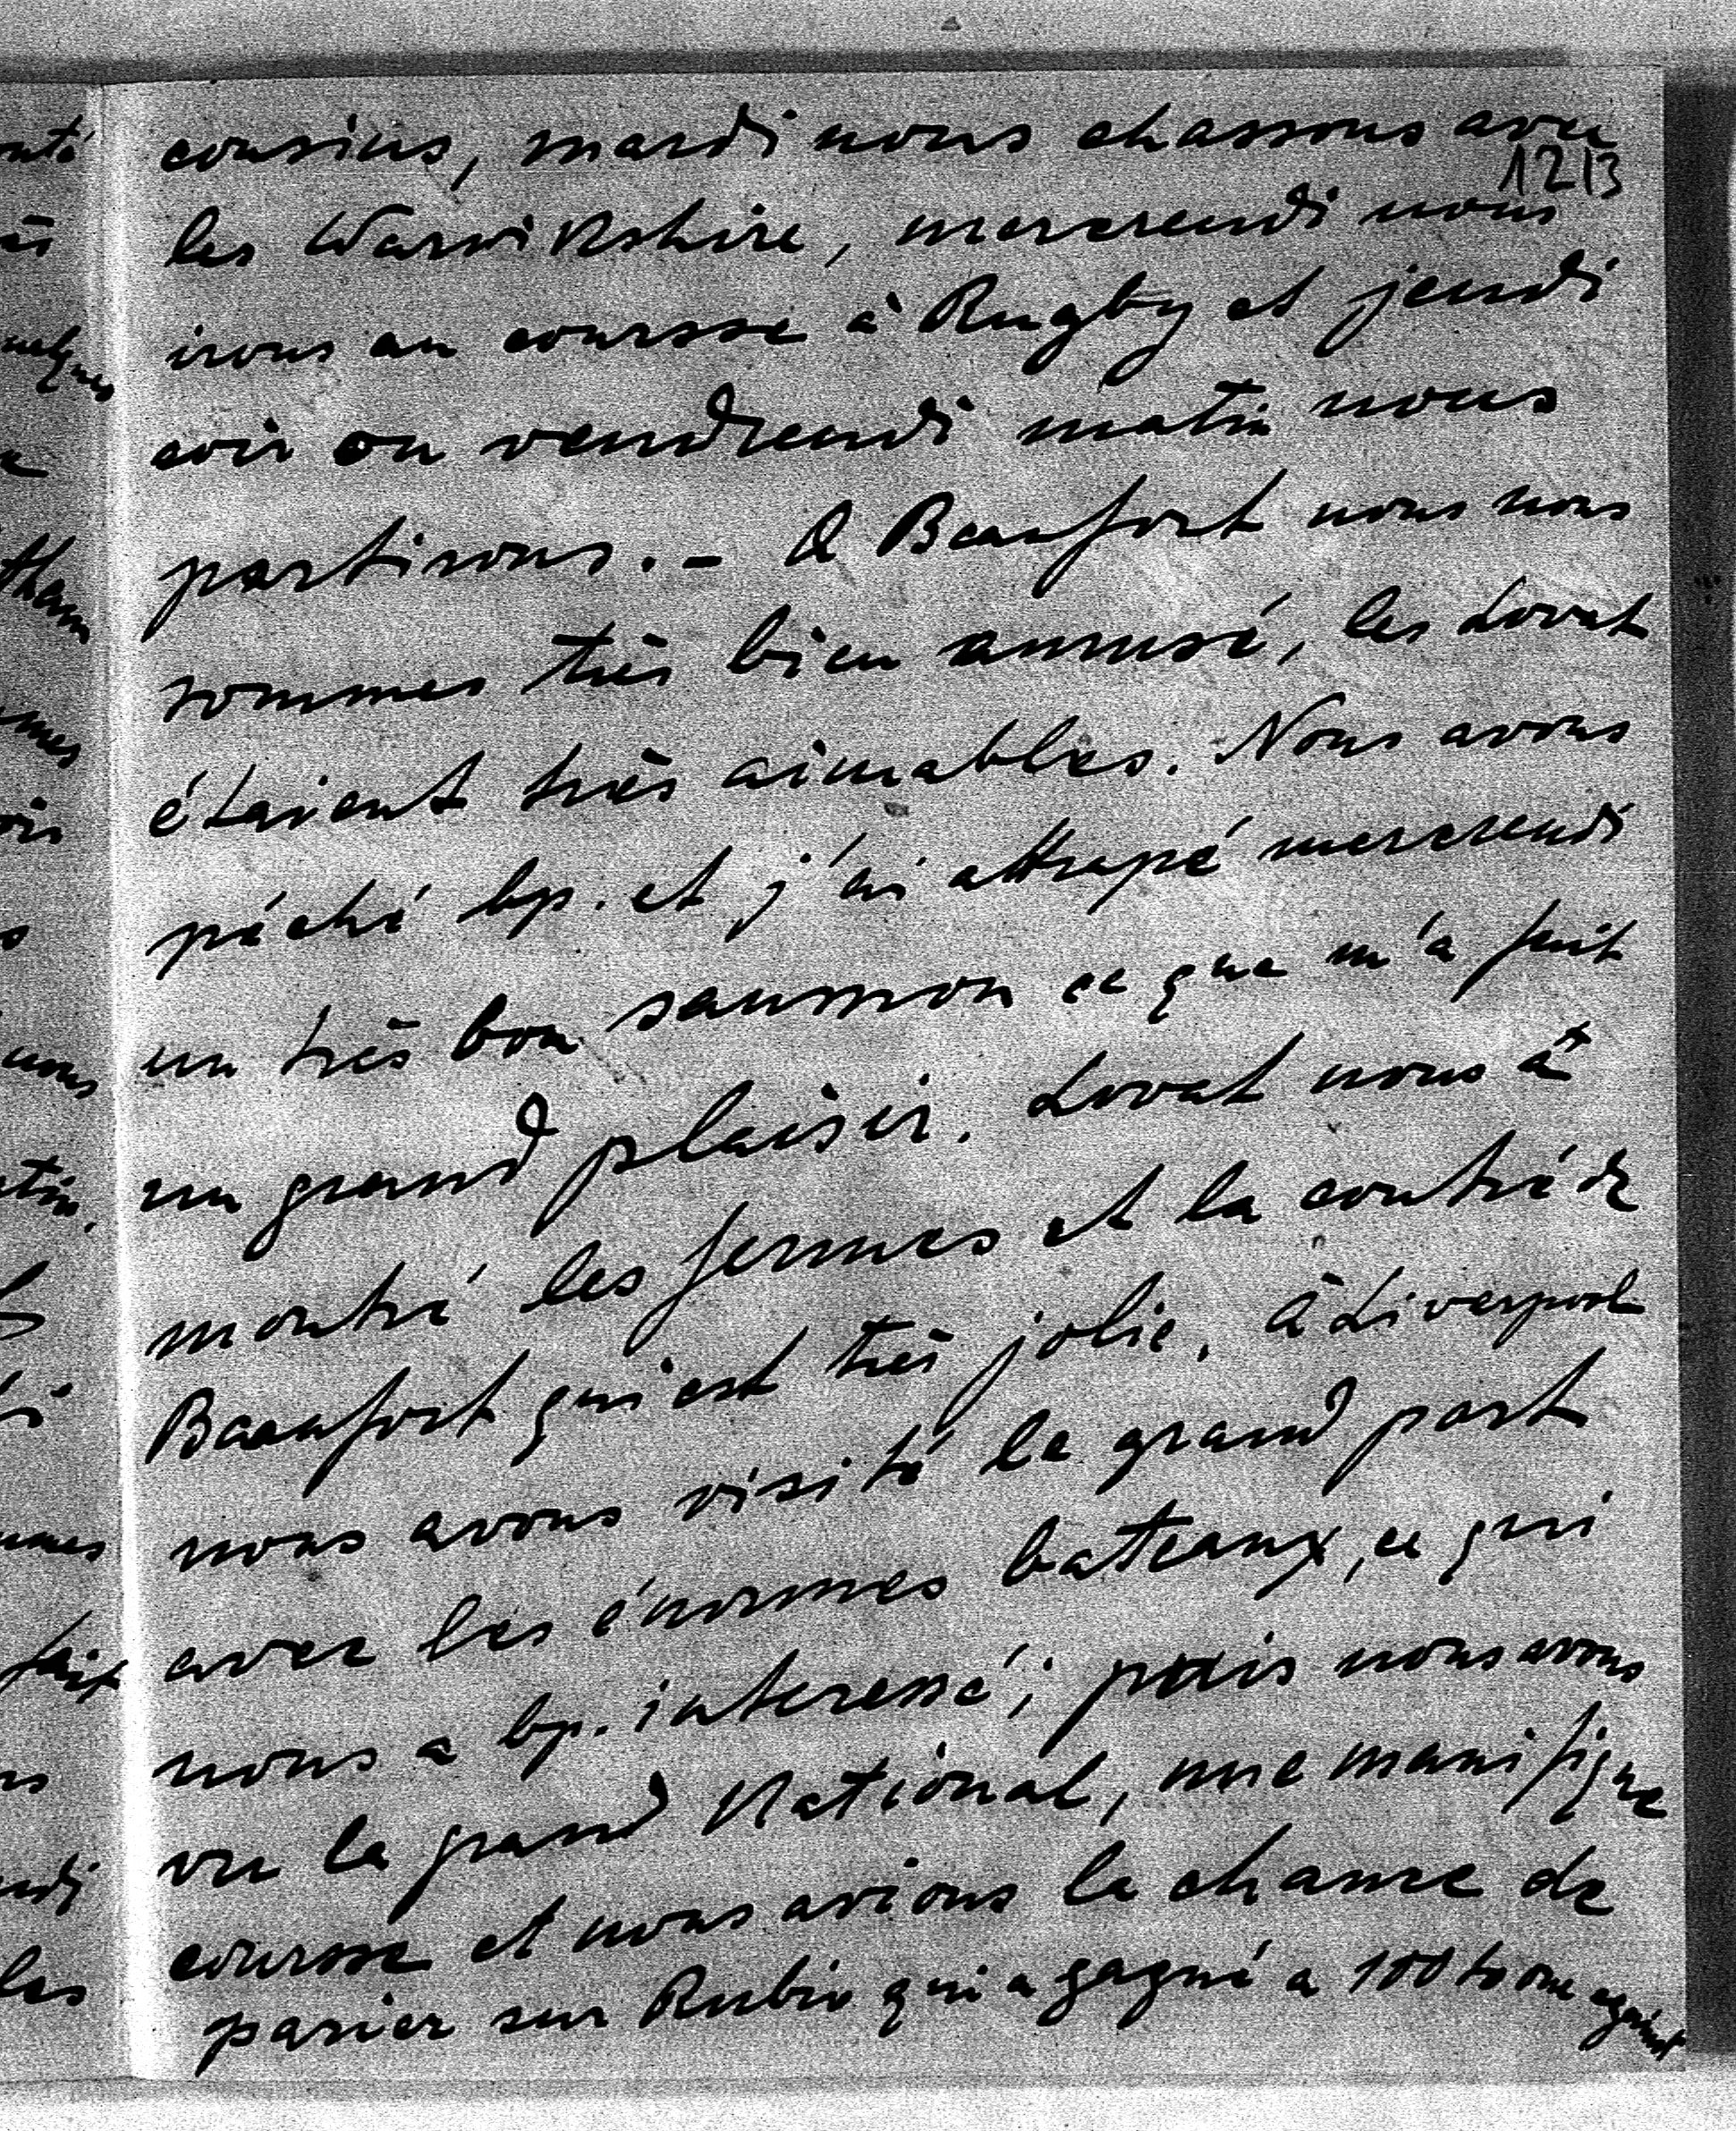 cousins, mardi nous chassons avec
1213
les Warwikshire, mercrendi nous
irons au coursse à Rugby et jeudi
soir ou vendrendi matin nous
partirons. - A Beaufort nous nous
sommes très bien amusé, les Lovat
étaient très aimables. Nous avons
péché bp. et j'ai attrapé mercrendi
un très bon saumon ce que m'a fait
un grand plaisir. Lovat nous a
montré les fermes et la contré de
Beaufort qui est très jolie. à Liverpool
nous avons visité le grand port
avec les énormes bateaux, ce qui
nous a bp. interessé; puis nous avons
vu le grand National, une manifique
coursse et nous avions la chance de
parier sur Rubio qui a gagné a 100 to one against